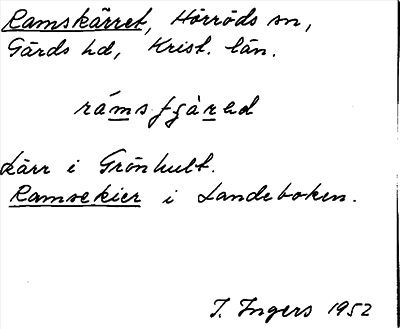 Ramskärret, Hörröds sn,
Gärds hd, Krist. län.
Kärr i Grönhult.
Ramsekier i Landeboken.
I. Ingers 1952